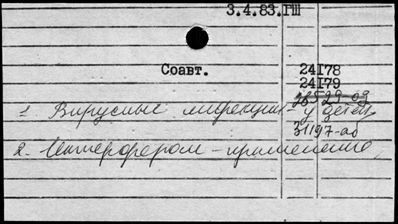 3.4.83.ГШ
Соавт. 24I78
24I79
28529-09
1. Вирусные инфекции - у детей
31197-аб
2. Интерферон - применение,